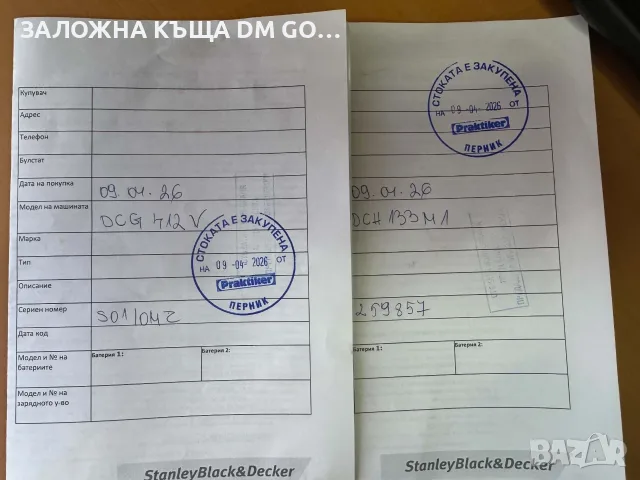 ЗАЛОЖНА КЪЩА DM GO...
Купувач
Адрес
Телефон
Булстат
Дата на покупка 09.04.26
Модел на машината DCG 412 V
Марка
Тип
Описание
Сериен номер
Дата код
Модел и № на батериите Батерия 1: Батерия 2:
Модел и № на зарядното у-во
СТОКАТА Е ЗАКУПЕНА
НА 09-04-2026 ОТ
Praktiker
ПЕРНИК
StanleyBlack&Decker
СТОКАТА Е ЗАКУПЕНА
НА 09-04-2026 ОТ
Praktiker
ПЕРНИК
09.04.26
DCH 133M1
259857
Батерия 1: Батерия 2:
StanleyBlack&Decker
BAZAR